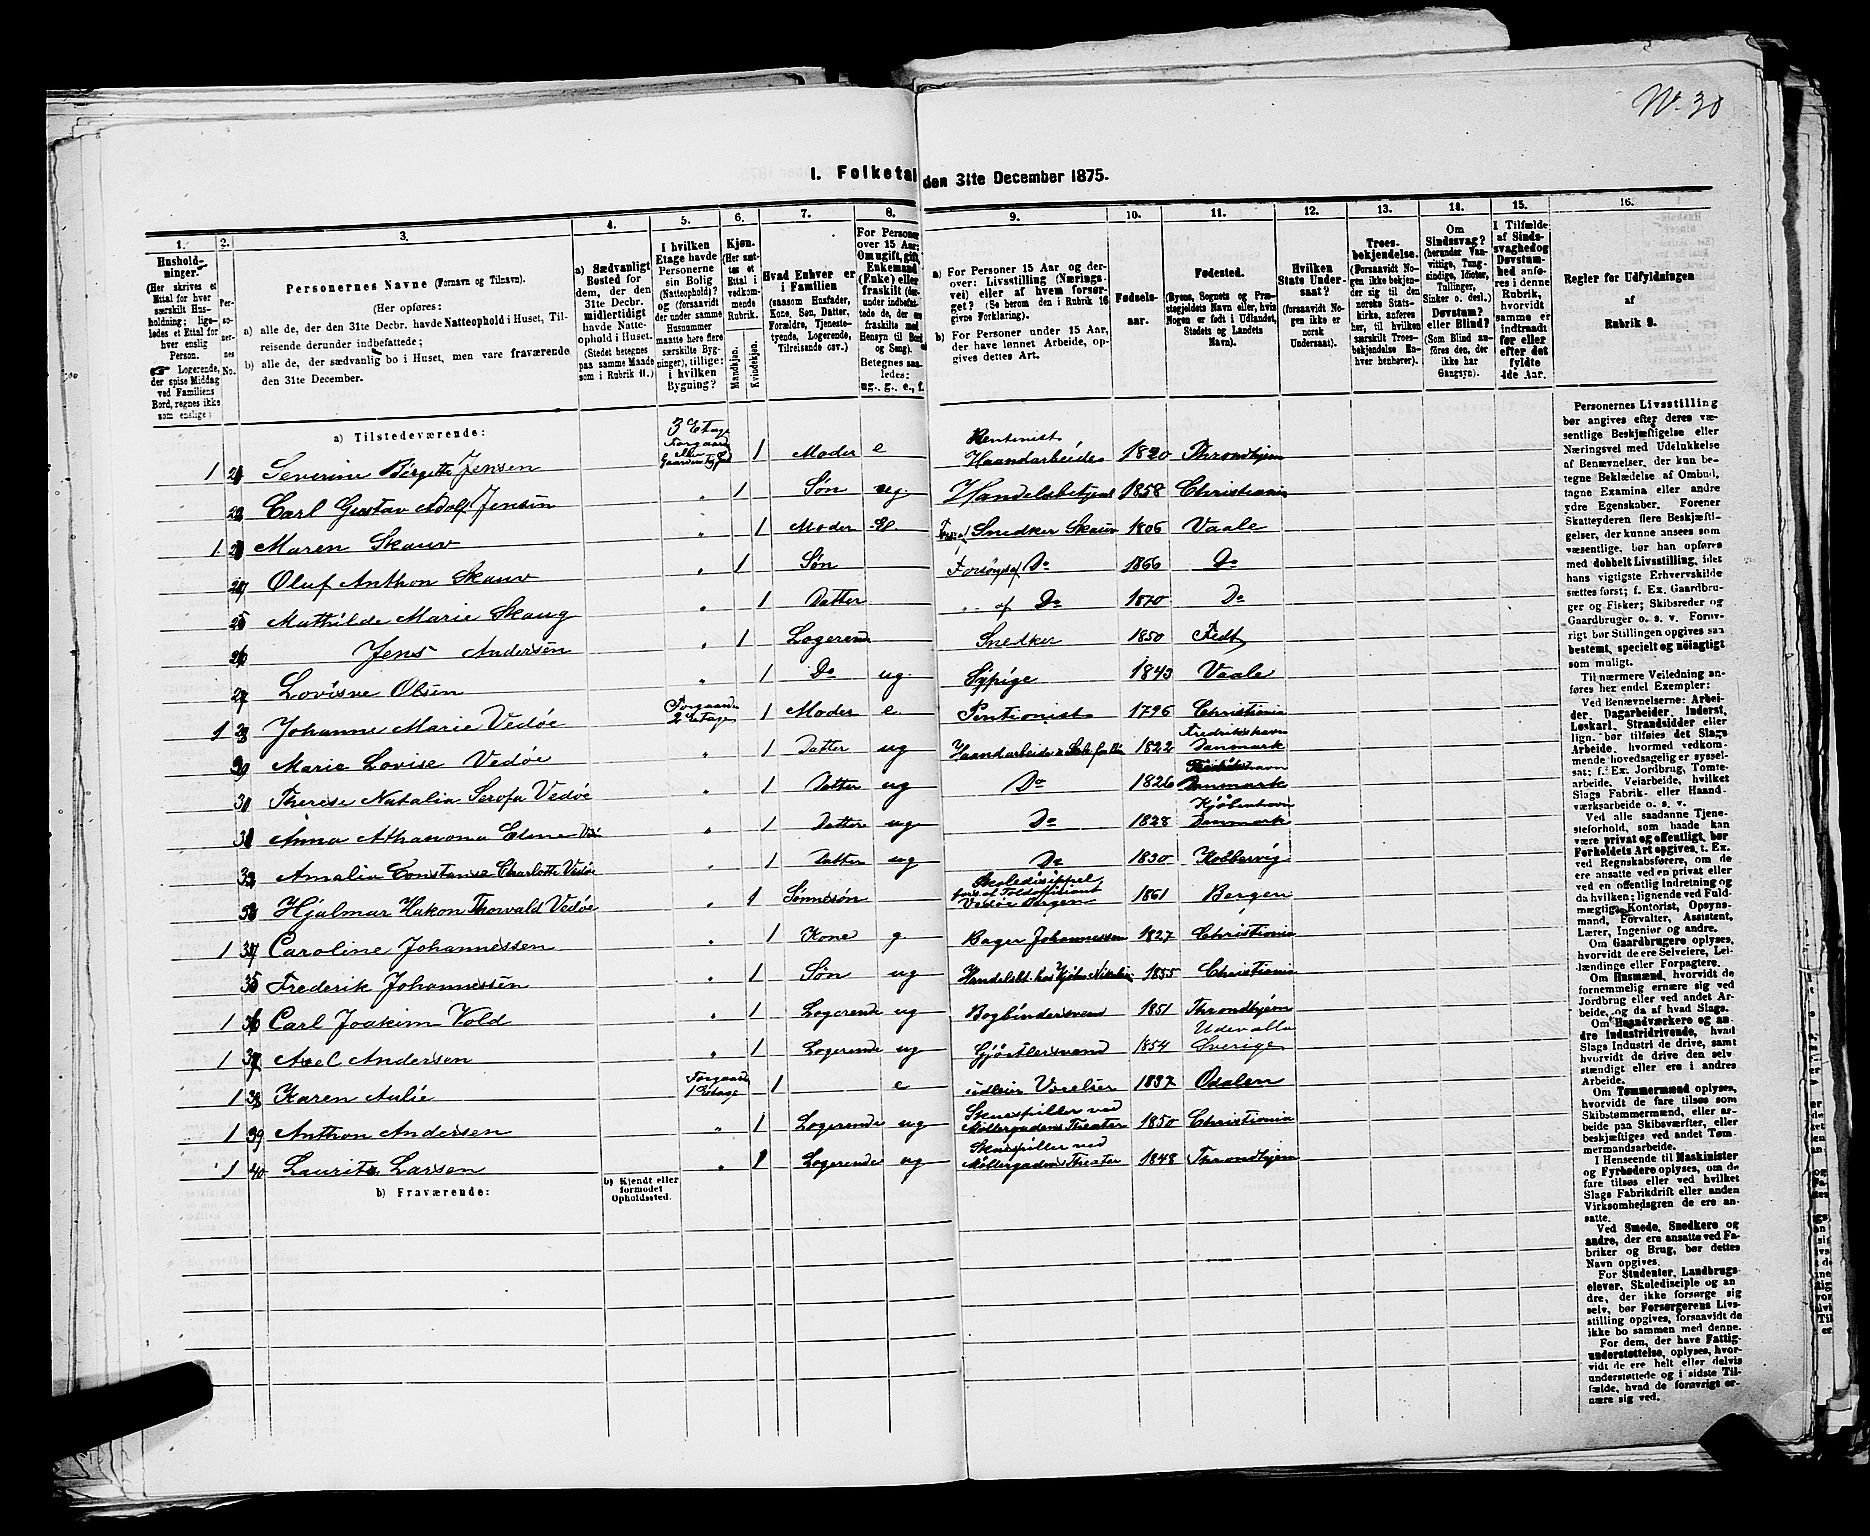 No. 30
I. Folketal den 31te December 1875.
1. 2. 3. 4. 5. 6. 7. 8. 9. 10. 11. 12. 13. 14. 15. 16.
Husholdninger. (Her skrives et Ettal for hver særskilt Husholdning; ligeledes et Ettal for hver enslig Person. ☞ Logerende, der spise Middag ved Familiens Bord, regnes ikke som enslige)
Personernes No.
Personernes Navne (Fornavn og Tilnavn).
(Her opføres:
a) alle de, der den 31te Decbr. havde Natteophold i Huset, Tilreisende derunder indbefattede;
b) alle de, der sædvanlig bo i Huset, men vare fraværende den 31te December.
a) Sædvanligt Bosted for dem, der den 31te Decbr. midlertidigt havde Natteophold i Huset. (Stedet betegnes paa samme Maade som i Rubrik 11.)
I hvilken Etage havde Personerne sin Bolig (Natteophold)? (forsaavidt der under samme Husnummer maatte høre flere særskilte Bygninger), tillige: i hvilken Bygning?
Kjøn. (Her sættes et Ettal i vedkommende Rubrik.
Mandkjøn. Kvindekjøn.
Hvad Enhver er i Familien (saasom Husfader, Kone, Søn, Datter, Forældre, Tjenestetyende, Logerende, Tilreisende osv.)
For Personer over 15 Aar: Om ugift, gift, Enkemand (Enke) eller fraskilt
Betegnes saaledes: ug., g., e., f.
a) For Personer 15 Aar og derover: Livsstilling (Næringsvei) eller af hvem forsørget? (Se herom den i Rubrik 16 givne Forklaring).
b) For Personer under 15 Aar, der have lønnet Arbeide, opgives dettes Art.
Fødselsaar.
Fødested. (Byens, Sognets og Præstegjeldets Navn eller, hvis Nogen er født i Udlandet, Stedets og Landets Navn).
Hvilken Stats Undersaat? (forsaavidt Nogen ikke er norsk Undersaat).
Troesbekjendelse. (Forsaavidt Nogen ikke bekjender sig til den norske Statskirke, anføres her, til hvilken særskilt Troesbekjendelse Enhver henhører).
Om Sindssvag? (herunder Vanvittige, Tungsindige, Idioter, Tullinger, Sinker o. desl.) Døvstum? eller Blind? (Som Blind anføres den, der ikke har Gangsyn).
I Tilfælde af Sindssvaghed og Døvstumhed anføres i denne Rubrik, hvorvidt samme er indtraadt før eller efter det fyldte 4de Aar.
Regler for Udfyldningen af Rubrik 9.
a) Tilstedeværende:
1 21 Severine Birgitte Jensen 3 Etage Forgaard 1 Moder e Rentenist Haandarbeide 1820 Throndhjem
22 Carl Gustav Adolf Jensen " 1 Søn ug. Handelsbetjent 1858 Christiania
1 23 Maren Skauv " 1 Moder Snedker Skauv 1806 Vaale
24 Oluf Anthon Skauv " 1 Søn Forsørges af Do 1866 Do
25 Mathilde Marie Skaug " 1 Datter " af Do 1870 Do
26 Jens Andersen " 1 Logerend Snedker 1850
27 Lovisve Olsen " 1 Do ug. Sypige 1843 Vaale
1 28 Johanne Marie Vedøe Forgaarden 2 Etage 1 Moder e. Pentionist 1796 Christiania
Marie Lovise Vedøe " 1 Datter ug Haandarbeide 1822 Fredrikshavn Danmark
Therese Natalia Serofa Vedøe " 1 Datter ug Do 1826 Danmark
Anna Athanona Elene " 1 Datter ug Do 1828 Kjøbenhavn Danmark
Amalia Constanse Charlotte Vedøe " 1 Datter ug Do 1830 Kobbervig
Hjalmar Hakon Thorvald Vedøe " 1 Sønnesøn Skoledisippel fors af Toldoffitiant Vedøe Bergen 1861 Bergen
1 34 Caroline Johannessen " 1 Kone g. Bager Johannessen 1827 Christiania
35 Frederik Johannessen " 1 Søn ug 1855 Christiania
1 36 Carl Joakim Vold " 1 Logerende ug Bogbindersvend 1851 Throndhjem
1 37 Axel Andersen " 1 Logerende ug Gjørtlersvend 1854 Udevalla Sverige
1 38 Karen Aulie Forgaard 1 Etage 1 e udleier Værelser 1837 Odalen
1 39 Anthon Andersen " 1 Logerende ug Skuespiller ved Møllergadens Theater 1850 Christiania
1 40 Lauritz Larsen " 1 Logerende ug Skuespiller ved Møllergadens Theater 1848 Throndhjem
b) Fraværende:
b) Kjendt eller formodet Opholdssted.
Personernes Livsstilling
bør angives efter deres væ-
sentlige Beskjæftigelse eller
Næringsvei med Udelukkelse
af Benævnelser, der kun be-
tegne Beklædelse af Ombud,
tagne Examina eller andre
ydre Egenskaber. Forener
Skatteyderen flere Beskjæfti-
gelser, der kunne ansees som
væsentlige, bør han opføres
med dobbelt Livsstilling, idet
hans vigtigste Erhvervskilde
sættes først; f. Ex. Gaardbru-
ger og Fisker; Skibsreder og
Gaardbruger o. s. v. Forøv-
rigt bør Stillingen opgives saa
bestemt, specielt og nøiagtigt
som muligt.
Til nærmere Veiledning an-
føres her endel Exempler:
Ved Benævnelserne: Arbei-
der, Dagarbeider, Inderst,
Løskarl, Strandsidder eller
lign. bør tilføies det Slags
Arbeide, hvormed vedkom-
mende hovedsagelig er syssel-
sat; f. Ex. Jordbrug, Tomte-
arbeide, Veiarbeide, hvilket
Slags Fabrik- eller Haand-
værksarbeide o. s. v.
Ved alle saadanne Tjene-
steforhold, som baade kan
være privat og offentligt, bør
Forholdets Art opgives, t. Ex.
ved Regnskabsførere, om de
ere ansatte ved en privat eller
ved en offentlig Indretning og
da hvilken; lignende ved Fuld-
mægtig, Kontorist, Opsyns-
mand, Forvalter, Assistent,
Lærer, Ingeniør og andre.
Om Gaardbrugere oplyses,
hvorvidt de ere Selveiere, Lei-
lændinge eller Forpagtere.
Om Husmænd, hvorvidt de
fornemmelig ernære sig ved
Jordbrug eller ved andet Ar-
beide, og da af hvad Slags.
Om Haandværkere og an-
dre Industridrivende, hvad
Slags Industri de drive, samt
hvorvidt de drive den selv-
stændigt eller ere i andres
Arbeide.
Om Tømmermænd oplyses,
hvorvidt de fare tilsøs som
Skibstømmermænd, eller ar-
beide paa Skibsværfter, eller
beskjæftiges ved andet Tøm-
mermandsarbeide.
I Henseende til Maskinister
og Fyrbødere oplyses, om de
fare tilsøs eller ved hvilket
Slags Fabrikdrift eller anden
Virksomhedsgren de ere an-
satte.
Ved Smede, Snedkere og
andre, der ere ansatte ved Fa-
briker og Brug, bør dettes
Navn opgives.
For Studenter, Landbrugs-
elever, Skoledisciple og an-
dre, der ikke forsørge sig
selv, bør Forsørgerens Livs-
stilling opgives, forsaavidt de
ikke bo sammen med denne.
For dem, der have Fattig-
understøttelse, oplyses, hvor-
vidt de ere helt eller delvis
understøttede og i sidste Til-
fælde, hvad de forøvrigt er-
nære sig ved.